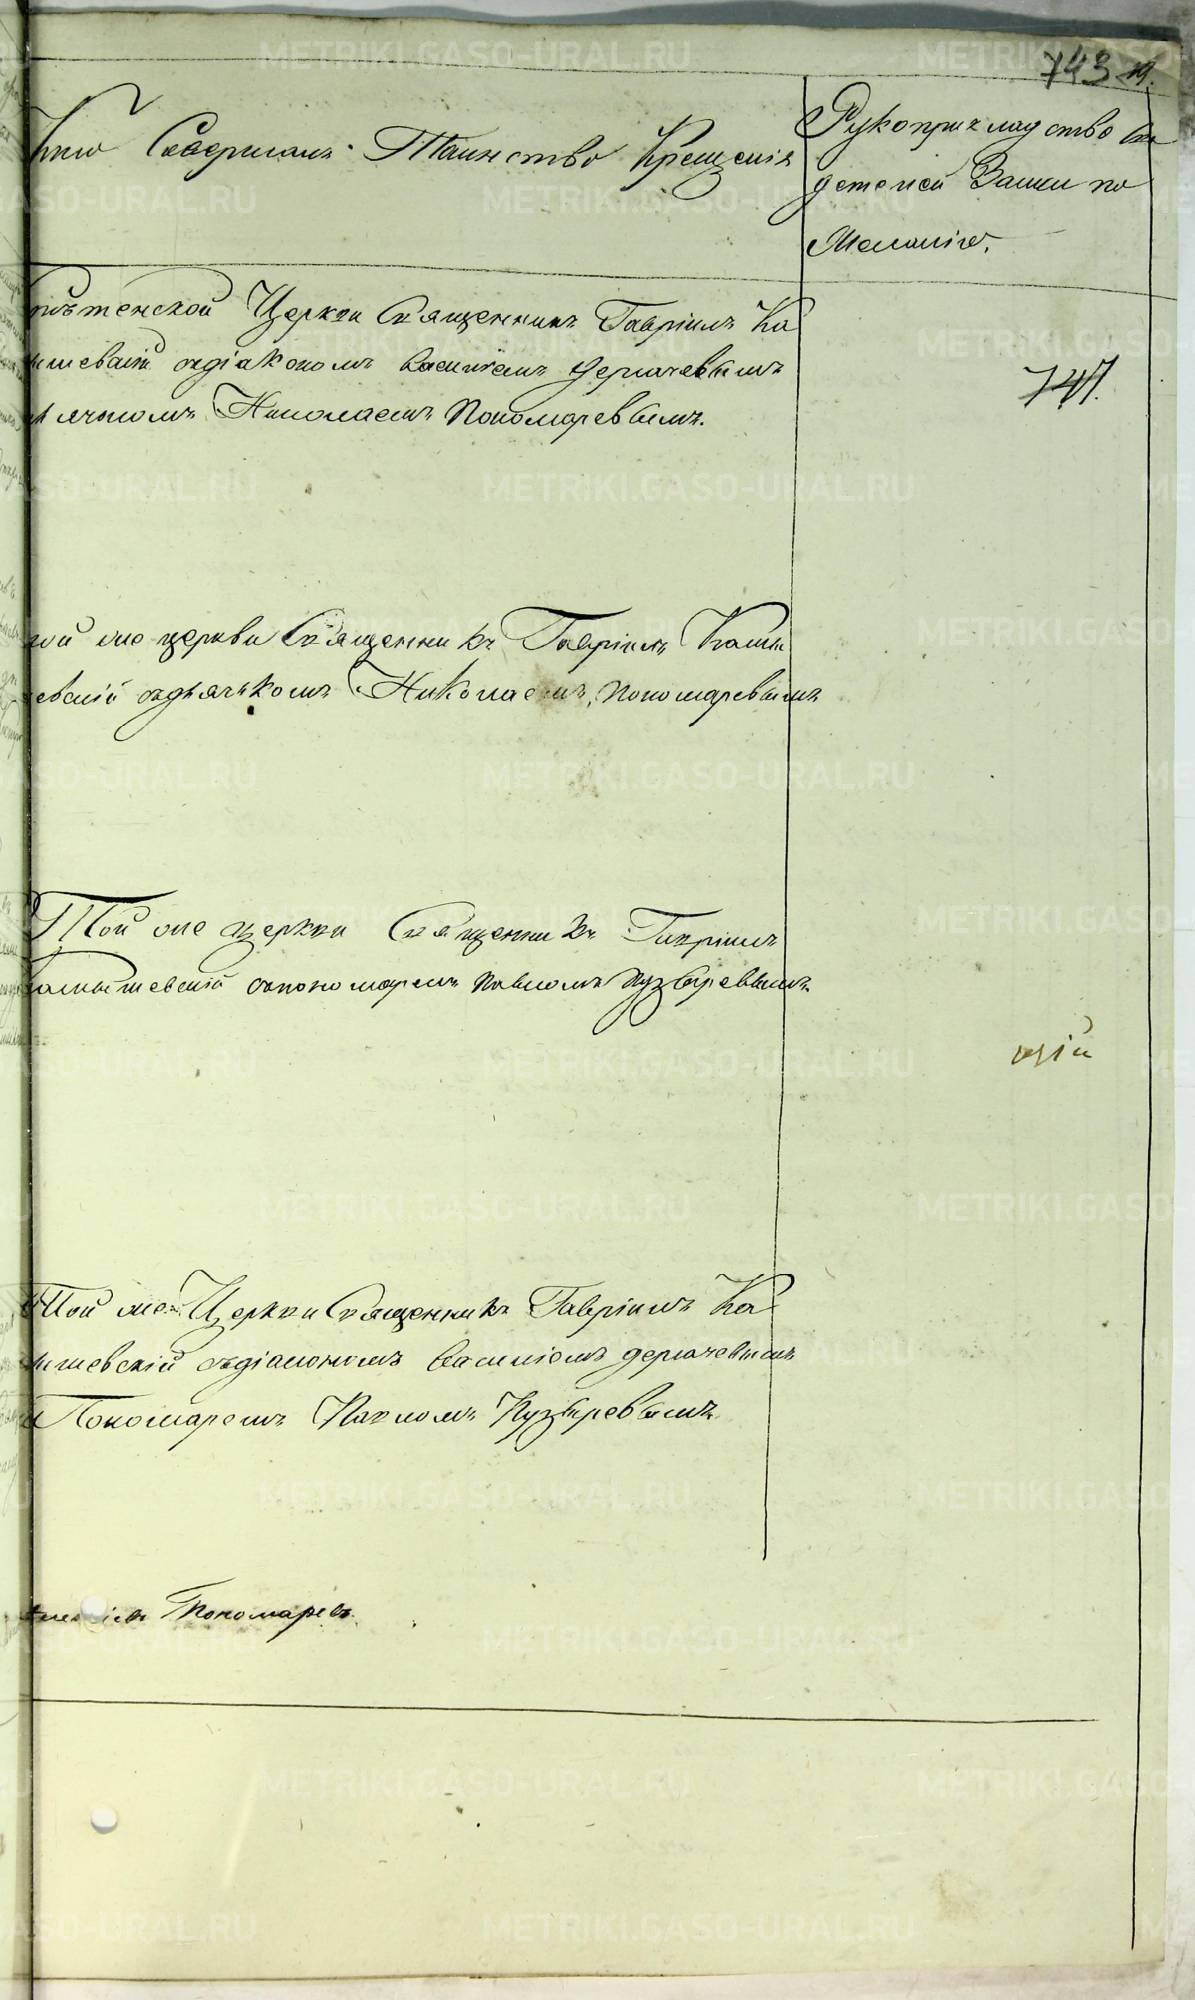 743
Кто Совершалъ Таинство Крещенія
Рукоприкладство сви
детелей Записи по
Желанію.
рѣтенской Церкви Священникъ Гавріилъ Ка
шевскій съдіакономъ Василіемъ Дергачевымъ
Николаемъ Пономаревымъ.
747.
той же церкви Священникъ Гавріилъ Камы
шевскій съдьячкомъ Николаемъ Пономаревымъ
Той же церкви Священникъ Гавріилъ
Камышевскій спономаремъ Павломъ Пузыревымъ
щій
Той же Церкви Священникъ Гавріилъ Ка
мышевскій съдіакономъ Василіемъ дергачевымъ
и Пономаремъ Павломъ Пузыревымъ.
Пономаревъ.
METRIKI.GASO-URAL.RU